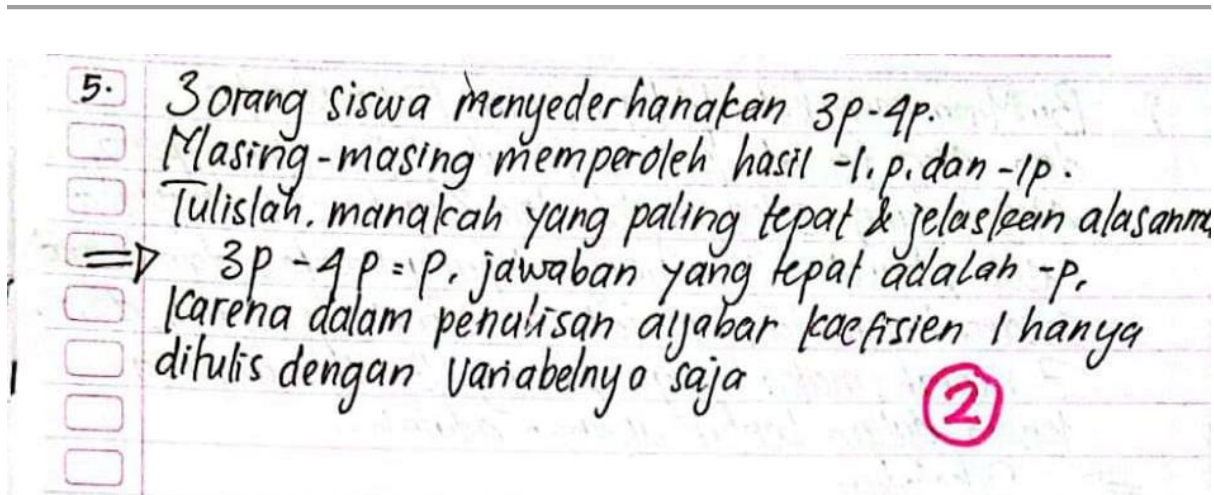 5. 3 orang siswa menyederhanakan 3p-4p.
Masing-masing memperoleh hasil -1. p. dan -1p.
Tulislah. manakah yang paling tepat & jelaskan alasanmu
⇒ 3p - 4p = p. jawaban yang tepat adalah -p.
Karena dalam penulisan aljabar koefisien 1 hanya
ditulis dengan variabelnya saja
2